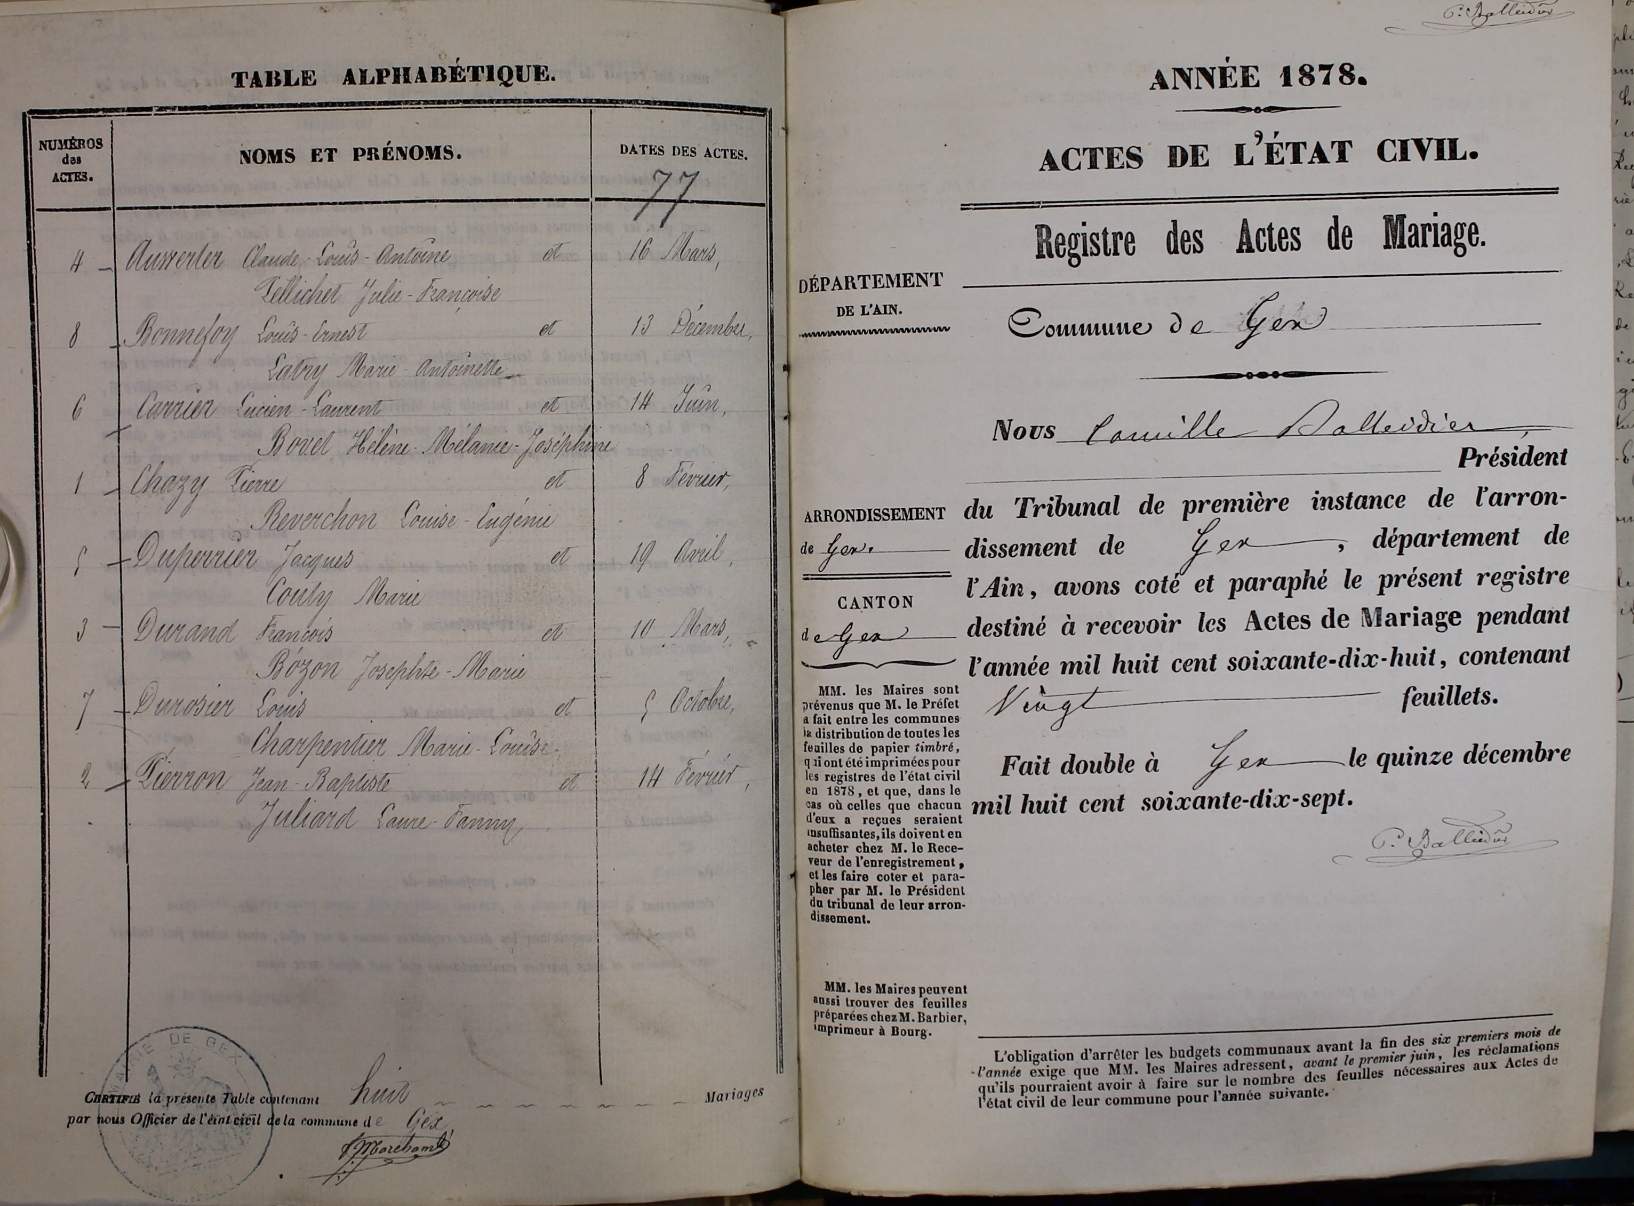 TABLE ALPHABÉTIQUE.
NUMÉROS
des
ACTES.
NOMS ET PRÉNOMS.
DATES DES ACTES.
77
4 Claude-Louis-Antoine et 16 Mars,
Pellichet Julie-Françoise
8 Bonnefoy Louis-Ernest et 13 Décembre,
Latry Marie-Antoinette
6 Carrier Lucien-Laurent et 14 Juin,
Bovet Hélène-Mélanie-Joséphine
1 Chazy Pierre et 8 Février,
Reverchon Louise-Eugénie
5 Duperrier Jacques et 19 Avril,
Couty Marie
3 Durand François et 10 Mars,
Bózon Josephte-Marie
7 Durosier Louis et 5 Octobre,
Charpentier Marie-Louise
2 Pierron Jean-Baptiste et 14 Février,
Juliard Laure-Fanny
MAIRIE DE GEX
CERTIFIÉ la présente Table contenant huit Mariages
par nous Officier de l'état civil de la commune de Gex
P. Balleidier
ANNÉE 1878.
ACTES DE L'ÉTAT CIVIL.
Registre des Actes de Mariage.
DÉPARTEMENT
DE L'AIN.
Commune de Gex
Nous Camille Balleidier,
Président
ARRONDISSEMENT
de Gex.
CANTON
de Gex
du Tribunal de première instance de l'arron-
dissement de Gex, département de
l'Ain, avons coté et paraphé le présent registre
destiné à recevoir les Actes de Mariage pendant
l'année mil huit cent soixante-dix-huit, contenant
Vingt feuillets.
Fait double à Gex le quinze décembre
mil huit cent soixante-dix-sept.
P. Balleidier
MM. les Maires sont
prévenus que M. le Préfet
a fait entre les communes
la distribution de toutes les
feuilles de papier timbré,
qui ont été imprimées pour
les registres de l'état civil
en 1878, et que, dans le
cas où celles que chacun
d'eux a reçues seraient
insuffisantes, ils doivent en
acheter chez M. le Rece-
veur de l'enregistrement,
et les faire coter et para-
pher par M. le Président
du tribunal de leur arron-
dissement.
MM. les Maires peuvent
aussi trouver des feuilles
préparées chez M. Barbier,
imprimeur à Bourg.
L'obligation d'arrêter les budgets communaux avant la fin des six premiers mois de
l'année exige que MM. les Maires adressent, avant le premier juin, les réclamations
qu'ils pourraient avoir à faire sur le nombre des feuilles nécessaires aux Actes de
l'état civil de leur commune pour l'année suivante.